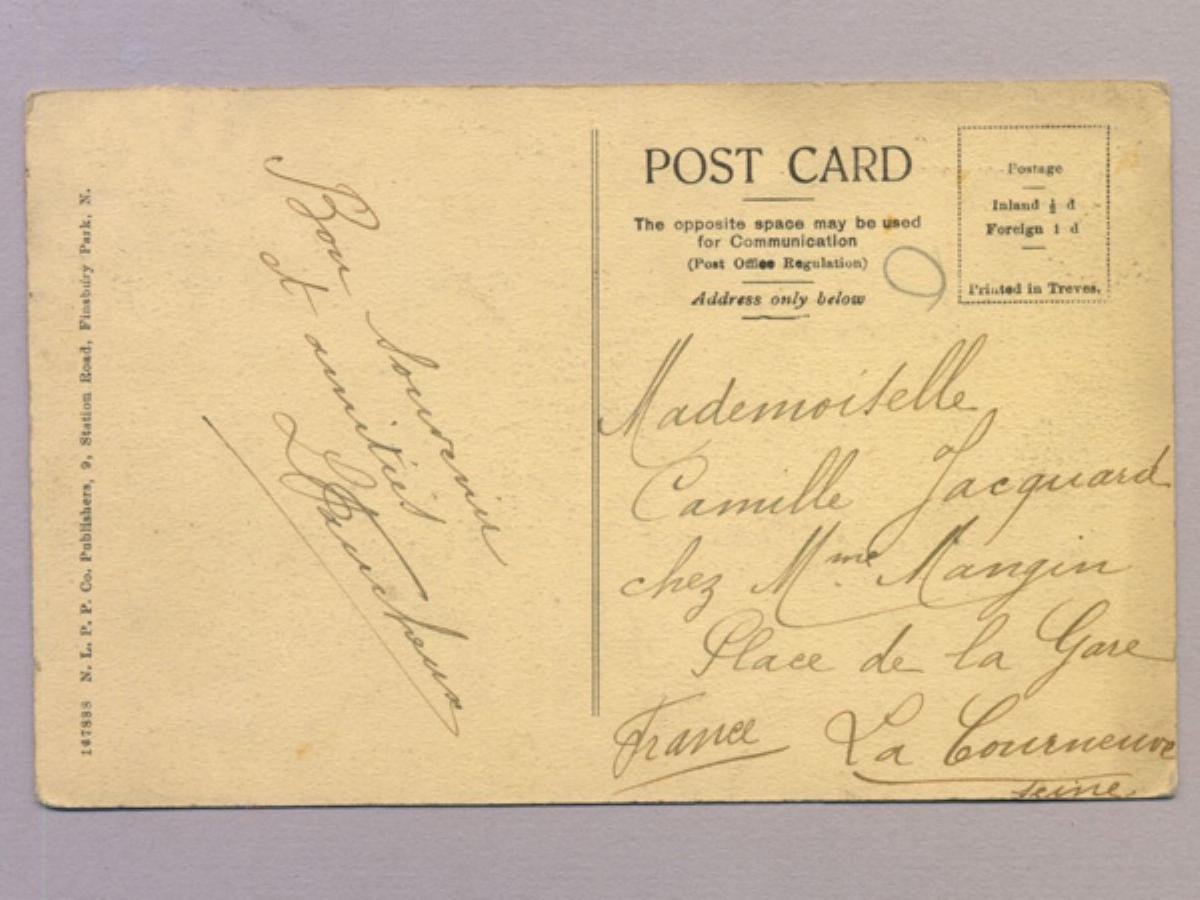 167888 N. L. P. P. Co. Publishers, 9, Station Road, Finsbury Park, N.
Bon souvenir
et amitiés
POST CARD
The opposite space may be used
for Communication
(Post Office Regulation)
Address only below
Postage
Inland ½ d
Foreign 1 d
Printed in Treves.
Mademoiselle
Camille Jacquard
chez Mme Mangin
Place de la Gare
France La Courneuve
seine